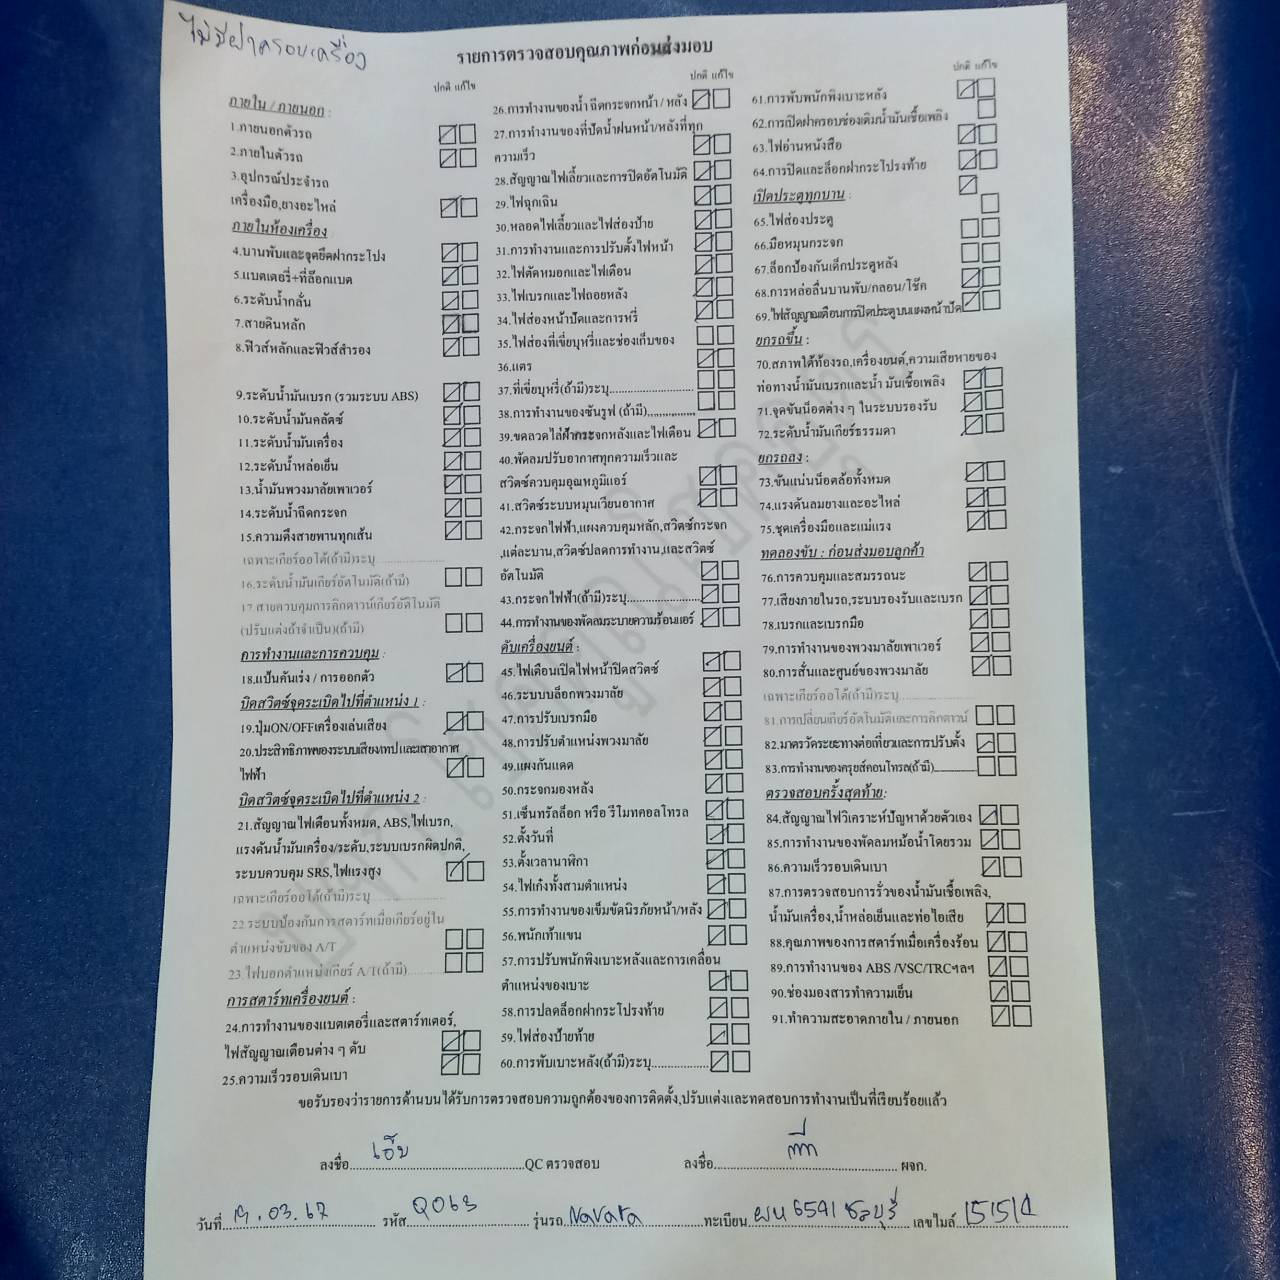 ไม่มีฝาครอบเครื่อง
รายการตรวจสอบคุณภาพก่อนส่งมอบ
ปกติ แก้ไข
ภายใน / ภายนอก :
1.ภายนอกตัวรถ
2.ภายในตัวรถ
3.อุปกรณ์ประจำรถ
เครื่องมือ,ยางอะไหล่
ภายในห้องเครื่อง
4.บานพับและจุดยึดฝากระโปง
5.แบตเตอรี่+ที่ล๊อกแบต
6.ระดับน้ำกลั่น
7.สายดินหลัก
8.ฟิวส์หลักและฟิวส์สำรอง
9.ระดับน้ำมันเบรก (รวมระบบ ABS)
10.ระดับน้ำมันคลัตช์
11.ระดับน้ำมันเครื่อง
12.ระดับน้ำหล่อเย็น
13.น้ำมันพวงมาลัยเพาเวอร์
14.ระดับน้ำฉีดกระจก
15.ความตึงสายพานทุกเส้น
เฉพาะเกียร์ออโต้(ถ้ามี)ระบุ
16.ระดับน้ำมันเกียร์อัตโนมัติ(ถ้ามี)
17.สายควบคุมการคิกดาวน์เกียร์อัติโนมัติ
(ปรับแต่งถ้าจำเป็น)(ถ้ามี)
การทำงานและการควบคุม :
18.แป้นคันเร่ง / การออกตัว
บิดสวิตซ์จุดระเบิดไปที่ตำแหน่ง 1 :
19.ปุ่มON/OFFเครื่องเล่นเสียง
20.ประสิทธิภาพของระบบเสียงเทปและเสาอากาศ
ไฟฟ้า
บิดสวิตซ์จุดระเบิดไปที่ตำแหน่ง 2 :
21.สัญญาณไฟเตือนทั้งหมด, ABS,ไฟเบรก,
แรงดันน้ำมันเครื่อง/ระดับ,ระบบเบรกผิดปกติ,
ระบบควบคุม SRS,ไฟแรงสูง
เฉพาะเกียร์ออโต้(ถ้ามี)ระบุ
22.ระบบป้องกันการสตาร์ทเมื่อเกียร์อยู่ใน
ตำแหน่งขับของ A/T
23.ไฟบอกตำแหน่งเกียร์ A/T(ถ้ามี)
การสตาร์ทเครื่องยนต์ :
24.การทำงานของแบตเตอรี่และสตาร์ทเตอร์,
ไฟสัญญาณเตือนต่าง ๆ ดับ
25.ความเร็วรอบเดินเบา
ปกติ แก้ไข
26.การทำงานของน้ำ ฉีดกระจกหน้า / หลัง
27.การทำงานของที่ปัดน้ำฝนหน้า/หลังที่ทุก
ความเร็ว
28.สัญญาณไฟเลี้ยวและการปิดอัตโนมัติ
29.ไฟฉุกเฉิน
30.หลอดไฟเลี้ยวและไฟส่องป้าย
31.การทำงานและการปรับตั้งไฟหน้า
32.ไฟตัดหมอกและไฟเตือน
33.ไฟเบรกและไฟถอยหลัง
34.ไฟส่องหน้าปัดและการหรี่
35.ไฟส่องที่เขี่ยบุหรี่และช่องเก็บของ
36.แตร
37.ที่เขี่ยบุหรี่(ถ้ามี)ระบุ
38.การทำงานของซันรูฟ (ถ้ามี)
39.ขดลวดไล่ฝ้ากระจกหลังและไฟเตือน
40.พัดลมปรับอากาศทุกความเร็วและ
สวิตซ์ควบคุมอุณหภูมิแอร์
41.สวิตซ์ระบบหมุนเวียนอากาศ
42.กระจกไฟฟ้า,แผงควบคุมหลัก,สวิตซ์กระจก
,แต่ละบาน,สวิตซ์ปลดการทำงาน,และสวิตซ์
อัตโนมัติ
43.กระจกไฟฟ้า(ถ้ามี)ระบุ
44.การทำงานของพัดลมระบายความร้อนแอร์
ดับเครื่องยนต์ :
45.ไฟเตือนเปิดไฟหน้าปิดสวิตซ์
46.ระบบบล็อกพวงมาลัย
47.การปรับเบรกมือ
48.การปรับตำแหน่งพวงมาลัย
49.แผงกันแดด
50.กระจกมองหลัง
51.เซ็นทรัลล็อก หรือ รีโมทคอลโทรล
52.ตั้งวันที่
53.ตั้งเวลานาฬิกา
54.ไฟเก๋งทั้งสามตำแหน่ง
55.การทำงานของเข็มขัดนิรภัยหน้า/หลัง
56.พนักเท้าแขน
57.การปรับพนักพิงเบาะหลังและการเคลื่อน
ตำแหน่งของเบาะ
58.การปลดล็อกฝากระโปรงท้าย
59.ไฟส่องป้ายท้าย
60.การพับเบาะหลัง(ถ้ามี)ระบุ
ปกติ แก้ไข
61.การพับพนักพิงเบาะหลัง
62.การเปิดฝาครอบช่องเติมน้ำมันเชื้อเพลิง
63.ไฟอ่านหนังสือ
64.การปิดและล็อกฝากระโปรงท้าย
เปิดประตูทุกบาน :
65.ไฟส่องประตู
66.มือหมุนกระจก
67.ล็อกป้องกันเด็กประตูหลัง
68.การหล่อลื่นบานพับ/กลอน/โช๊ค
69.ไฟสัญญาณเตือนการปิดประตูบนแผงหน้าปัด
ยกรถขึ้น :
70.สภาพใต้ท้องรถ,เครื่องยนต์,ความเสียหายของ
ท่อทางน้ำมันเบรกและน้ำ มันเชื้อเพลิง
71.จุดขันน็อตต่าง ๆ ในระบบรองรับ
72.ระดับน้ำมันเกียร์ธรรมดา
ยกรถลง :
73.ขันแน่นน็อตล้อทั้งหมด
74.แรงดันลมยางและอะไหล่
75.ชุดเครื่องมือและแม่แรง
ทดลองขับ : ก่อนส่งมอบลูกค้า
76.การควบคุมและสมรรถนะ
77.เสียงภายในรถ,ระบบรองรับและเบรก
78.เบรกและเบรกมือ
79.การทำงานของพวงมาลัยเพาเวอร์
80.การสั่นและศูนย์ของพวงมาลัย
เฉพาะเกียร์ออโต้(ถ้ามี)ระบุ
81.การเปลี่ยนเกียร์อัตโนมัติและการคิกดาวน์
82.มาตรวัดระยะทางต่อเที่ยวและการปรับตั้ง
83.การทำงานของครุยส์คอนโทรล(ถ้ามี)
ตรวจสอบครั้งสุดท้าย:
84.สัญญาณไฟวิเคราะห์ปัญหาด้วยตัวเอง
85.การทำงานของพัดลมหม้อน้ำโดยรวม
86.ความเร็วรอบเดินเบา
87.การตรวจสอบการรั่วของน้ำมันเชื้อเพลิง,
น้ำมันเครื่อง,น้ำหล่อเย็นและท่อไอเสีย
88.คุณภาพของการสตาร์ทเมื่อเครื่องร้อน
89.การทำงานของ ABS /VSC/TRCฯลฯ
90.ช่องมองสารทำความเย็น
91.ทำความสะอาดภายใน / ภายนอก
ขอรับรองว่ารายการด้านบนได้รับการตรวจสอบความถูกต้องของการติดตั้ง,ปรับแต่งและทดสอบการทำงานเป็นที่เรียบร้อยแล้ว
ลงชื่อ เอ็ม QC ตรวจสอบ ลงชื่อ ผจก.
วันที่ 19.03.67 รหัส Q063 รุ่นรถ Navara ทะเบียน ผน 6591 ชลบุรี เลขไมล์